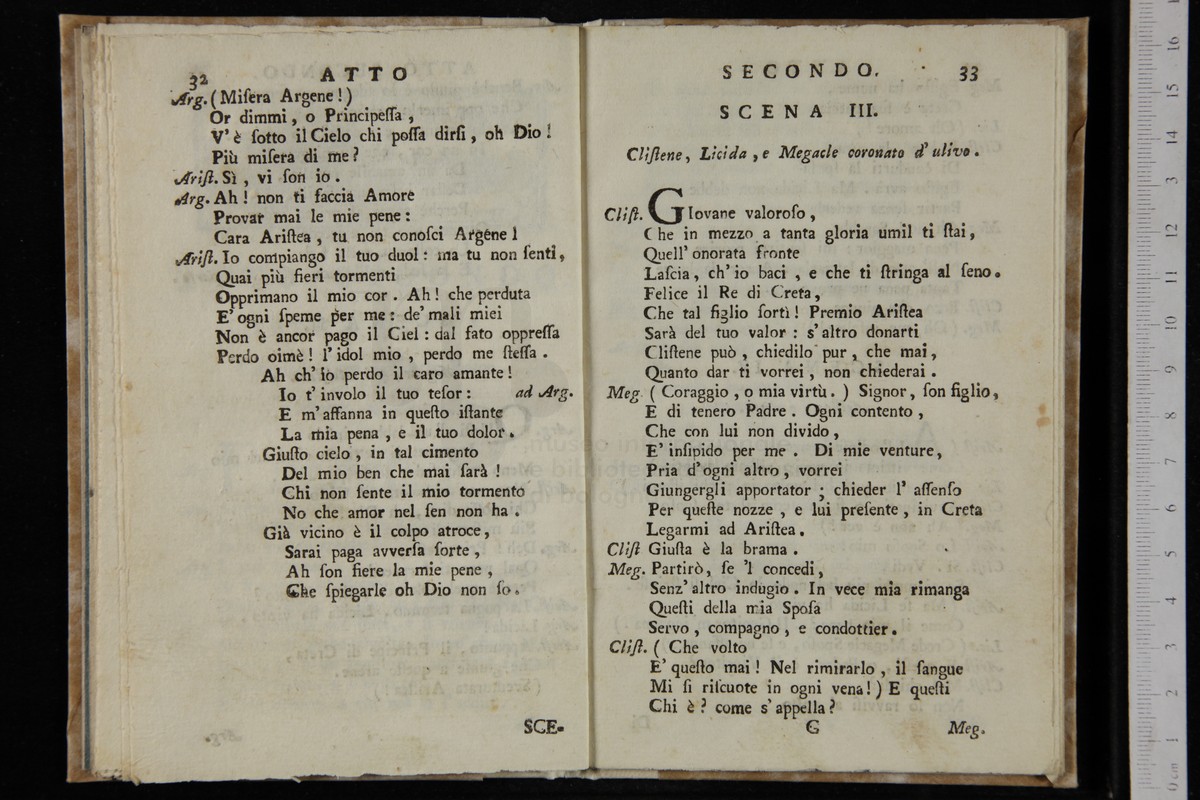 32 ATTO
Arg. (Miſera Argene!)
Or dimmi, o Principeſſa,
V'è ſotto il Cielo chi poſſa dirſi, oh Dio!
Più miſera di me?
Ariſt. Sì, vi ſon io.
Arg. Ah! non ti faccia Amore
Provar mai le mie pene:
Cara Ariſtea, tu non conoſci Argene!
Ariſt. Io compiango il tuo duol: ma tu non ſenti,
Quai più fieri tormenti
Opprimano il mio cor. Ah! che perduta
E' ogni ſpeme per me: de' mali miei
Non è ancor pago il Ciel: dal fato oppreſſa
Perdo oimè! l' idol mio, perdo me ſteſſa.
Ah ch' io perdo il caro amante!
Io t' involo il tuo teſor: ad Arg.
E m' affanna in queſto iſtante
La mia pena, e il tuo dolor.
Giuſto cielo, in tal cimento
Del mio ben che mai ſarà!
Chi non ſente il mio tormento
No che amor nel ſen non ha.
Già vicino è il colpo atroce,
Sarai paga avverſa ſorte,
Ah ſon fiere la mie pene,
Che ſpiegarle oh Dio non ſo.
SCE-
SECONDO. 33
SCENA III.
Cliſtene, Licida, e Megacle coronato d' ulivo.
Cliſt. GIovane valoroſo,
Che in mezzo a tanta gloria umil ti ſtai,
Quell' onorata fronte
Laſcia, ch' io baci, e che ti ſtringa al ſeno.
Felice il Re di Creta,
Che tal figlio ſortì! Premio Ariſtea
Sarà del tuo valor: s' altro donarti
Cliſtene può, chiedilo pur, che mai,
Quanto dar ti vorrei, non chiederai.
Meg. (Coraggio, o mia virtù.) Signor, ſon figlio,
E di tenero Padre. Ogni contento,
Che con lui non divido,
E' inſipido per me. Di mie venture,
Pria d' ogni altro, vorrei
Giungergli apportator; chieder l' aſſenſo
Per queſte nozze, e lui preſente, in Creta
Legarmi ad Ariſtea.
Cliſt Giuſta è la brama.
Meg. Partirò, ſe 'l concedi,
Senz' altro indugio. In vece mia rimanga
Queſti della mia Spoſa
Servo, compagno, e condottier.
Cliſt. (Che volto
E' queſto mai! Nel rimirarlo, il ſangue
Mi ſi riſcuote in ogni vena!) E queſti
Chi è? come s' appella?
G Meg.